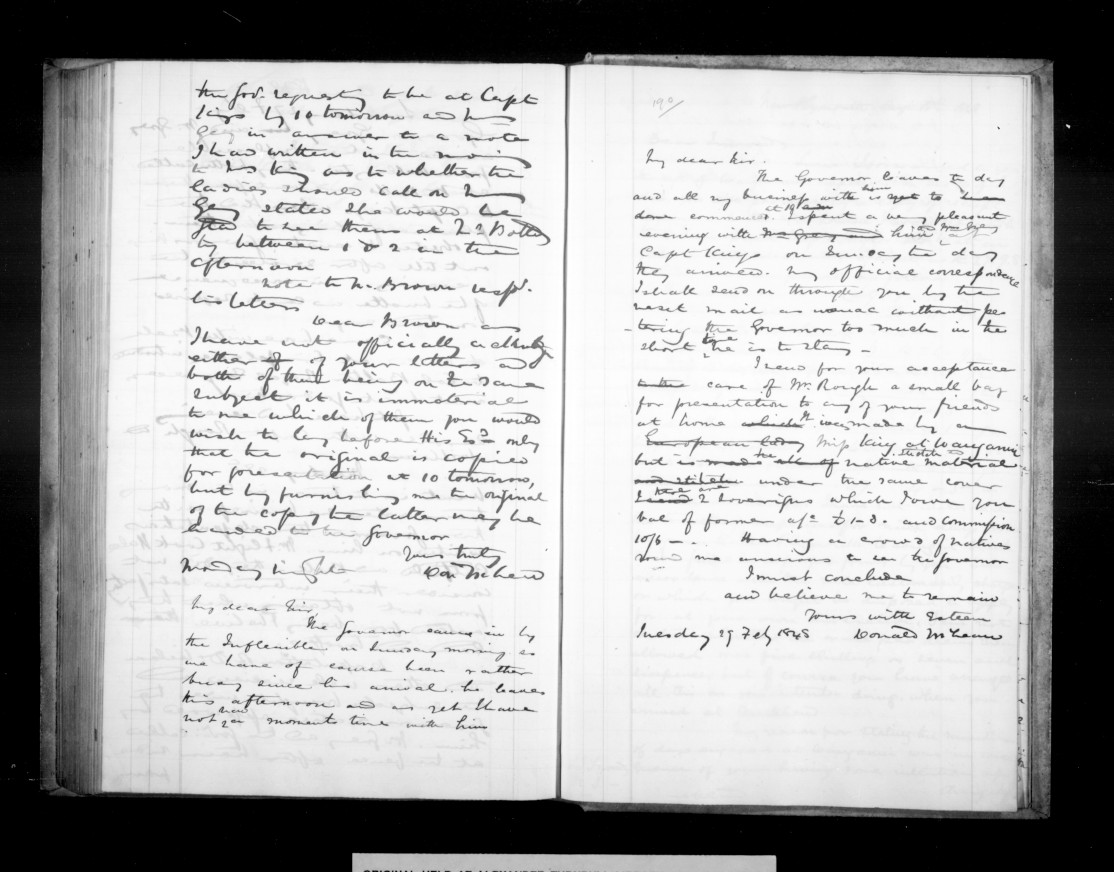 the Gov. requesting to be at Capt
Kings by 10 tomorrow and Mrs
Grey in answer to a note
I had written in the morning
to Mrs King as to whether the
ladies should call on Mrs
Grey stated she would be
glad to see them at
by between 1 & 2 in the
afternoon
note to Mr. Brown respg.
his letters
Dear Brown as
I have not officially acknowledged
either of of your letters and
both of them being on the same
subject it is immaterial
to me which of them you would
wish to lay before His Exy only
that the original is copied
for presentation at 10 tomorrow,
but by furnishing me the original
of the copy the latter may be
handed to the Governor
Yours truly
Monday night Don McLean
My dear Sir
The Governor came in by
the Inflexible on Sunday morning as
we have of course been rather
busy since his arrival. he leaves
this afternoon and as yet I have
not had a moments time with him
190/
My dear Sir.
The Governor leaves to day
and all my business with him is yet to
done commenced. I spent a very pleasant
evening with Mrs Grey and him and Mrs Grey
Capt Kings on Sunday the day
they arrived. My official correspondence
I shall send on through you by the
next mail as without pe-
-tering the Governor too much in the
short time he is to stay -
I send for your acceptance
to the care of Mr. Rough a small bag
for presentation to any of your friends
at home which It was made by
European lady Miss King at Wanganui
but is made all of native material
and stitched under the same cover
I send there are 2 sovereigns which I owe you
bal of former a/c £1-8. and commission
10/6 - . Having a crowd of natives
round me anxious to see the Governor
I must conclude
and believe me to remain
Yours with Esteem
Tuesday 29 Feby 1848 Donald McLean